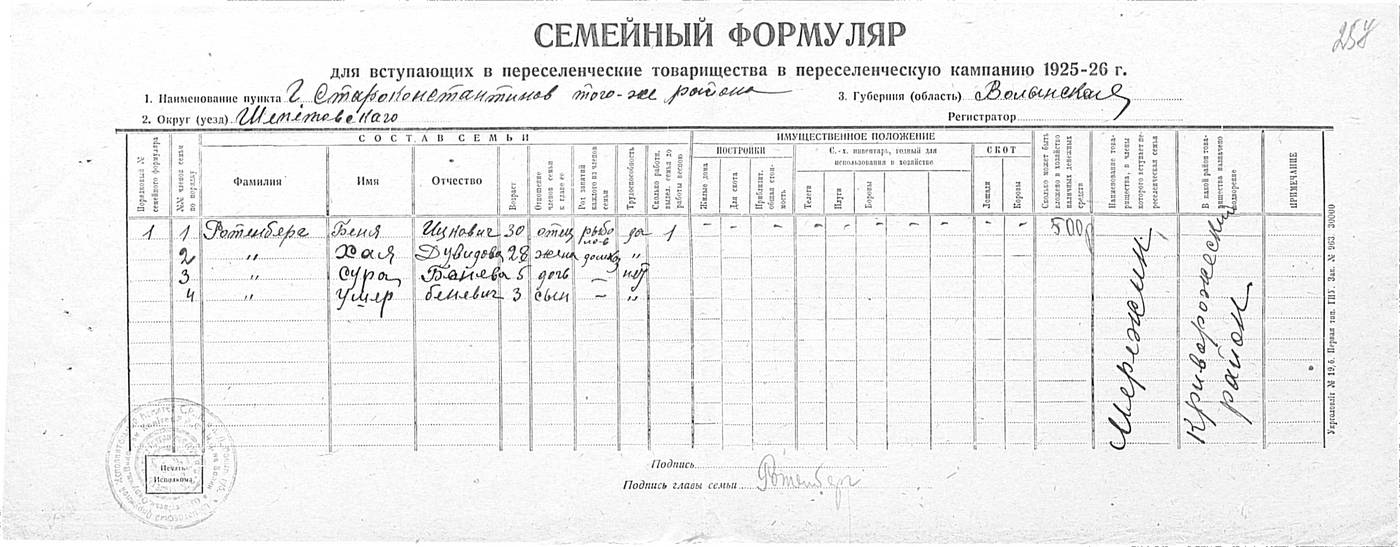 257
СЕМЕЙНЫЙ ФОРМУЛЯР
для вступающих в переселенческие товарищества в переселенческую кампанию 1925-26 г.
1. Наименование пункта Г. Староконстантинов того-же района 3. Губерния (область) Волынская
2. Округ (уезд) Шепетовского Регистратор
СОСТАВ СЕМЬИ ИМУЩЕСТВЕННОЕ ПОЛОЖЕНИЕ
Порядковый № семейного формуляра
№№ членов семьи по порядку
Фамилия
Имя
Отчество
Возраст
Отношение членов семьи к главе ее
Род занятий каждого из членов семьи
Трудоспособность
Сколько работн. выдел. семья до работы весною
ПОСТРОЙКИ
Жилые дома
Для скота
Приблизит. общая стоимость
С.-х. инвентарь, годный для использования в хозяйстве
Телеги
Плуги
Бороны
СКОТ
Лошади
Коровы
Сколько может быть вложено в хозяйство наличных денежных средств
Наименование товарищества, в члены которого вступает переселенческая семья
В какой район товарищества назначено водворение
ПРИМЕЧАНИЕ
1 1 Ротенберг Беня Ицкович 30 отец рыболов да 1 – – – – – – – – – – – 500р
2 „ Хая Дувидовна 28 жена домхоз „
3 „ Сура Беневна 5 дочь – нет
4 „ Умер беневич 3 сын – „
Мережин
Криворожеский район
Укрголовліт № 19,6. Первая тип. ГПУ. Зак. № 963. 30000
Печать Исполкома
Подпись
Подпись главы семьи Ротенберг